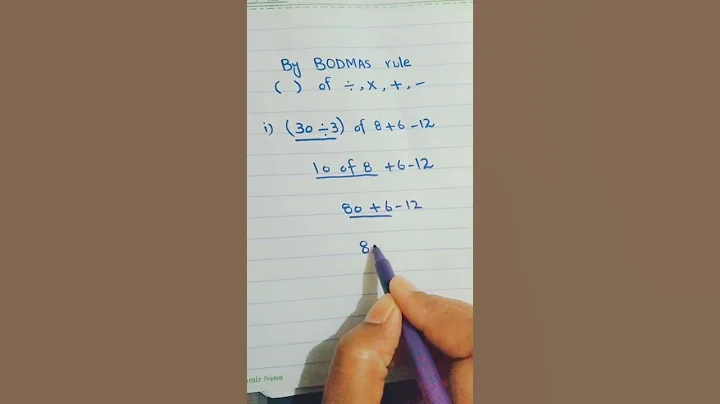 By BODMAS rule
( ) of ÷, x, +, -
i) (30 ÷ 3) of 8 + 6 - 12
10 of 8 + 6 - 12
80 + 6 - 12
8